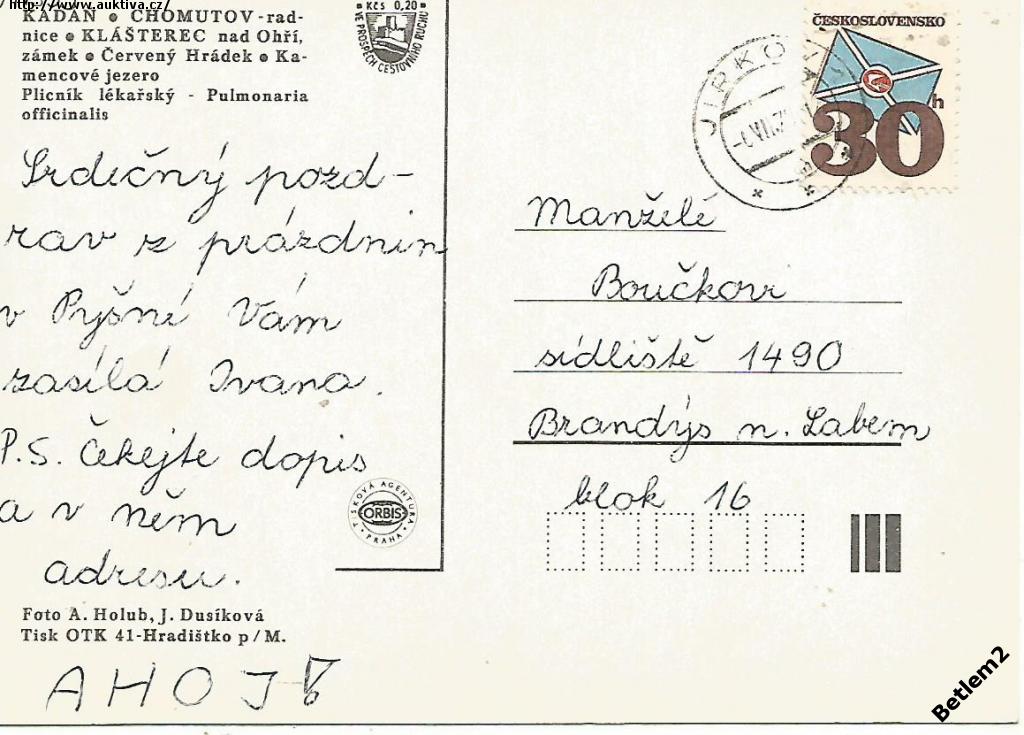 http://www.auktiva.cz/
KADAŇ ● CHOMUTOV - rad-
nice ● KLÁŠTEREC nad Ohří,
zámek ● Červený Hrádek ● Ka-
mencové jezero
Plicník lékařský - Pulmonaria
officinalis
Kčs 0,20
VE PROSPĚCH CESTOVNÍHO RUCHU
ČESKOSLOVENSKO
30h
JIRKOV
Srdečný pozd-
rav z prázdnin
v Pyšné Vám
zasílá Ivana.
P.S. čekejte dopis
a v něm
adresu.
TISKOVÁ AGENTURA
ORBIS
PRAHA
Foto A. Holub, J. Dusíková
Tisk OTK 41-Hradištko p/M.
AHOJ!
Manželé
Boučkovi
sídliště 1490
Brandýs n. Labem
blok 16
Betlem2